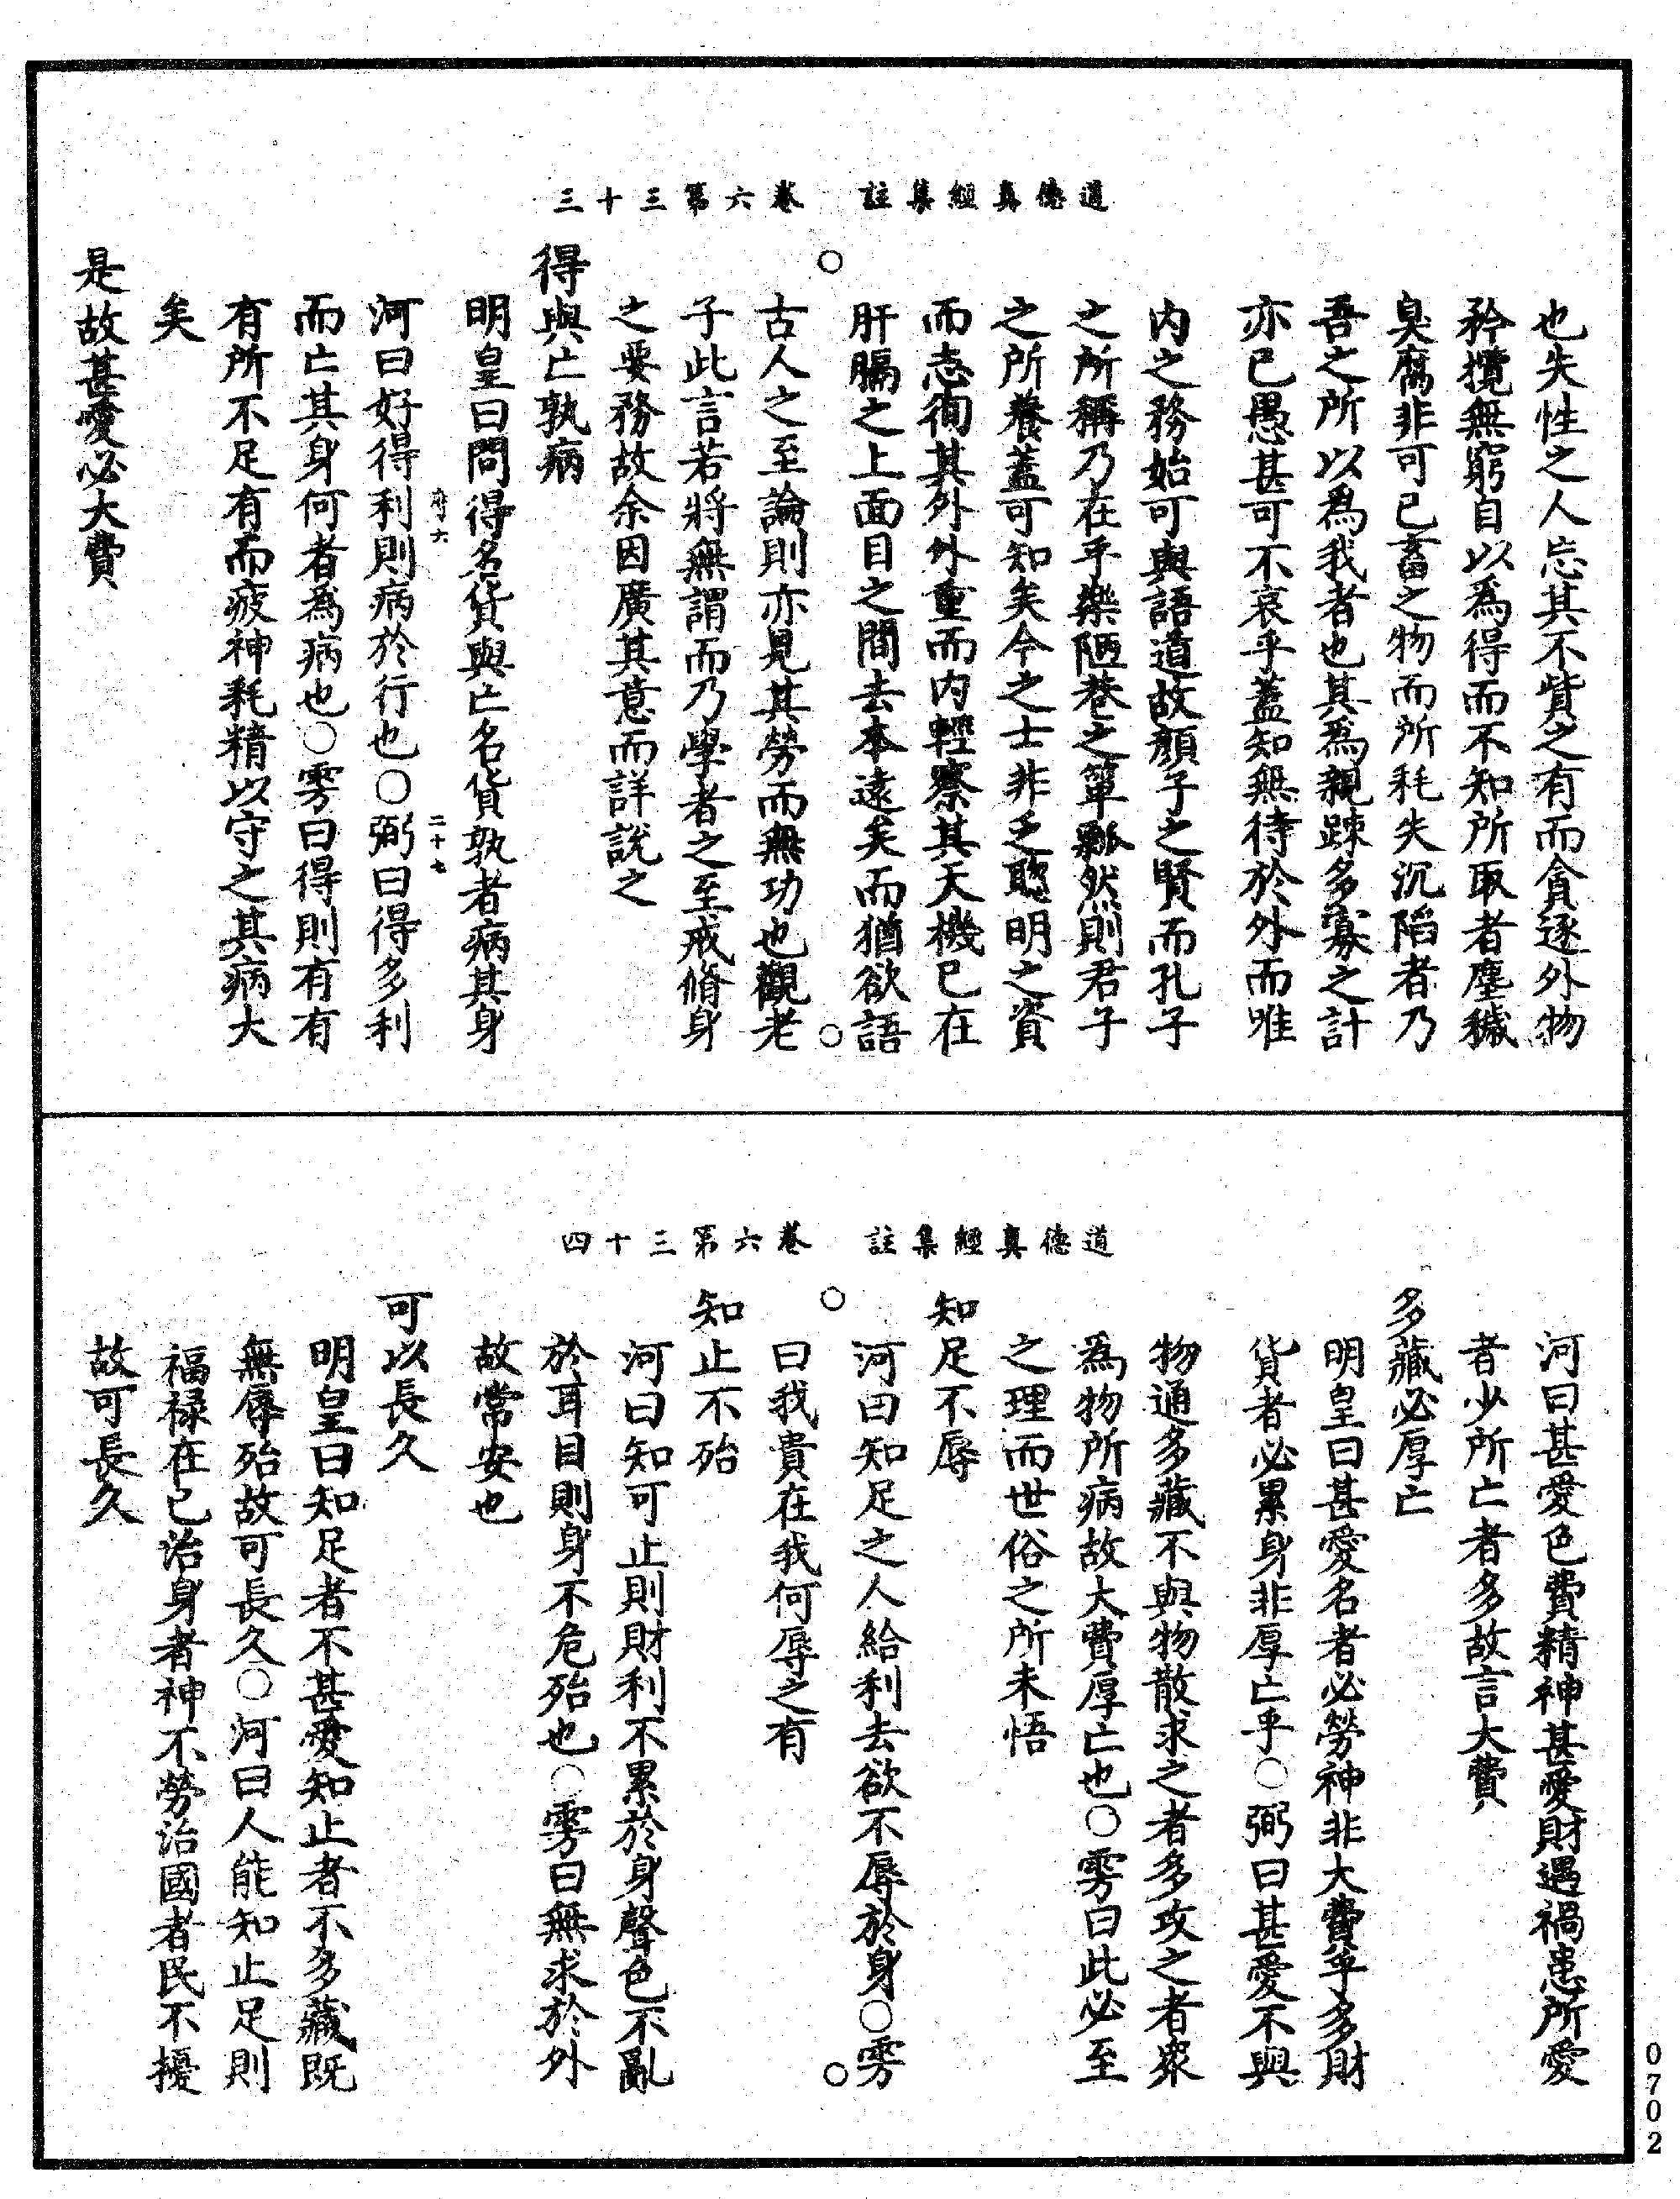 道德真經集註　卷六第三十三
也失性之人忘其不貲之有而貪逐外物
矜攬無窮自以為得而不知所取者塵穢
臭腐非可已畜之物而所耗失沉陷者乃
吾之所以為我者也其為親踈多寡之計
亦已愚甚可不哀乎蓋知無待於外而唯
内之務始可與語道故顏子之賢而孔子
之所稱乃在乎樂陋巷之簞瓢然則君子
之所養蓋可知矣今之士非乏聰明之資
而恣徇其外外重而内輕察其天機已在
肝膈之上面目之間去本遠矣而猶欲語
古人之至論則亦見其勞而無功也觀老
子此言若將無謂而乃學者之至戒脩身
之要務故余因廣其意而詳說之
得與亡孰病
明皇曰問得名貨與亡名貨孰者病其身
府六　二十七
河曰好得利則病於行也○弼曰得多利
而亡其身何者為病也○雱曰得則有有
有所不足有而疲神耗精以守之其病大
矣
是故甚愛必大費
道德真經集註　卷六第三十四
河曰甚愛色費精神甚愛財遇禍患所愛
者少所亡者多故言大費
多藏必厚亡
明皇曰甚愛名者必勞神非大費乎多財
貨者必累身非厚亡乎○弼曰甚愛不與
物通多藏不與物散求之者多攻之者衆
為物所病故大費厚亡也○雱曰此必至
之理而世俗之所未悟
知足不辱
河曰知足之人給利去欲不辱於身○雱
曰我貴在我何辱之有
知止不殆
河曰知可止則財利不累於身聲色不亂
於耳目則身不危殆也○雱曰無求於外
故常安也
可以長久
明皇曰知足者不甚愛知止者不多藏既
無辱殆故可長久○河曰人能知止足則
福禄在已治身者神不勞治國者民不擾
故可長久
0702